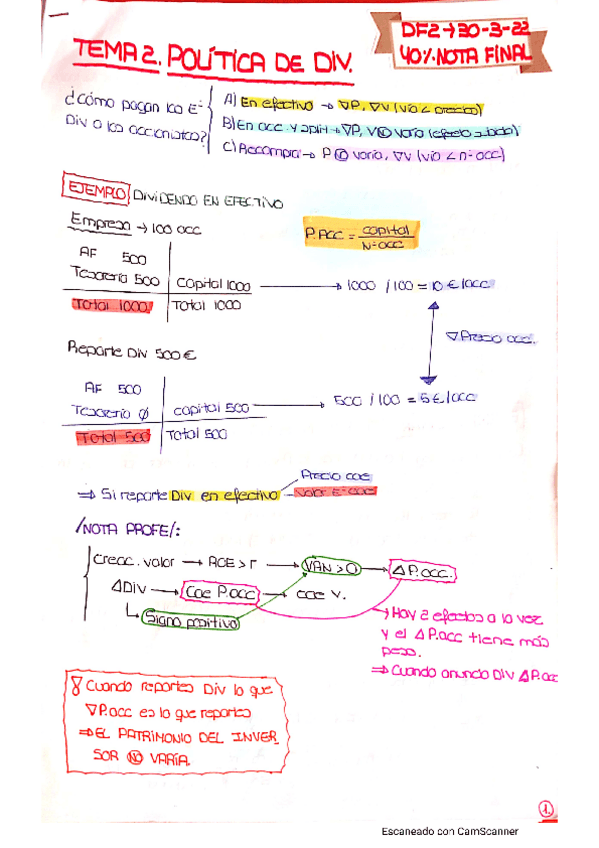 DF2→30-3-22
40%.NOTA FINAL
TEMA 2. POLÍTICA DE DIV.
¿Cómo pagan las Eª
Div a los accionistas?
A) En efectivo → ∇P, ∇V (vía < precio)
B) En acc. y split → ∇P, V NO varía
C) Recompra → P NO varía, ∇V (vía < nº acc)
EJEMPLO DIVIDENDO EN EFECTIVO
Empresa → 100 acc
P.Acc = capital / Nº acc
AF 500
Tesorería 500 Capital 1000 → 1000 / 100 = 10 €/acc
Total 1000 Total 1000
∇ Precio acc.
Reparte Div 500 €
AF 500
Tesorería Ø capital 500 → 500 / 100 = 5 €/acc
Total 500 Total 500
⇒ Si reparte Div en efectivo
Precio cae
Valor Eª cae
/NOTA PROFE/:
Creac. valor → RCE > r → VAN > 0 → Δ P.acc.
Δ Div → Cae P.acc → cae V.
Signo positivo
→ Hay 2 efectos a la vez
y el Δ P.acc tiene más
peso.
⇒ Cuando anuncio DIV Δ P.acc
Cuando reportes Div lo que
∇P.acc es lo que reportes
⇒ EL PATRIMONIO DEL INVER
SOR NO VARÍA.
1.
Escaneado con CamScanner